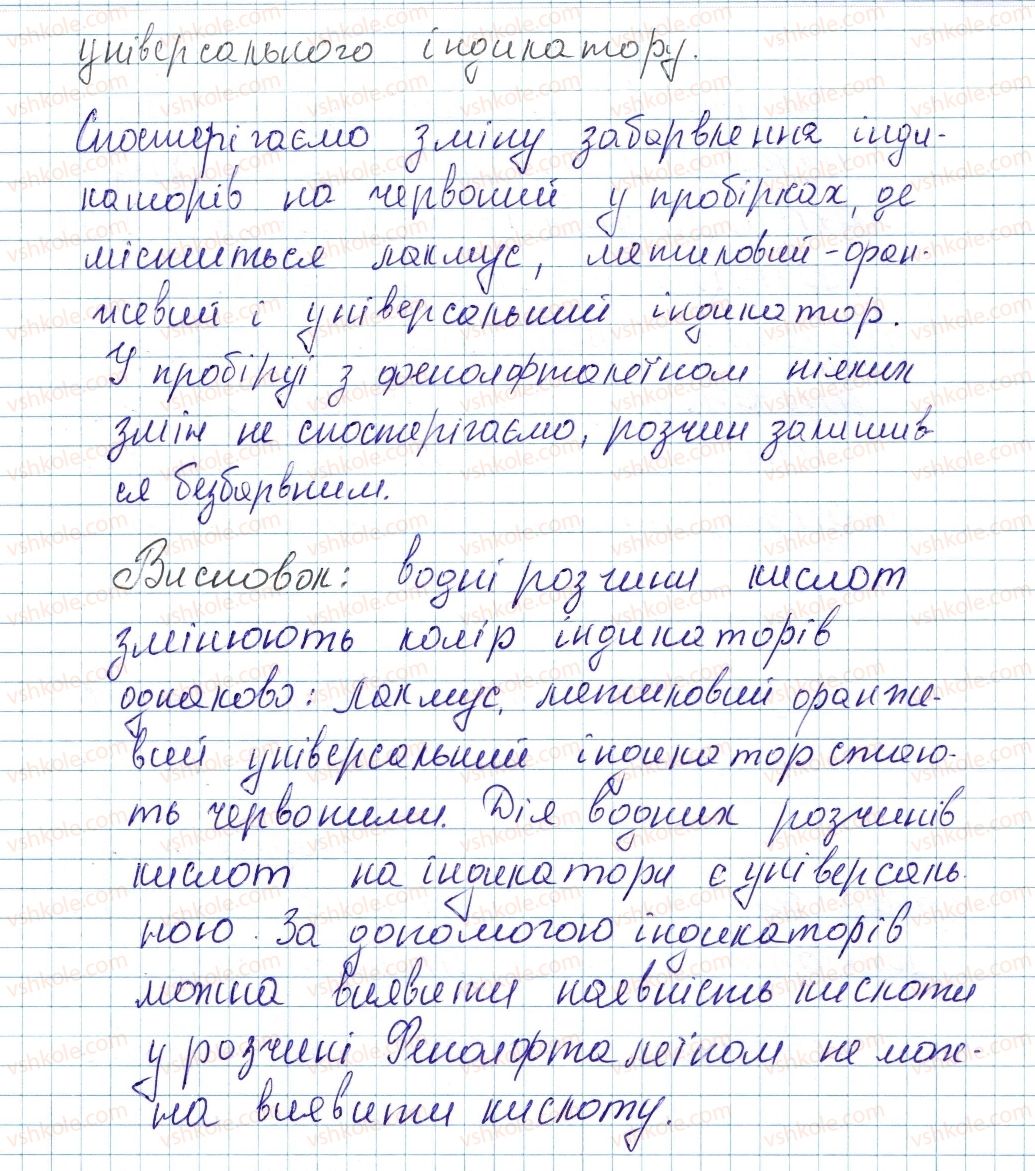 універсального індикатору.
Спостерігаємо зміну забарвлення інди-
каторів на червоний у пробірках, де
міститься лакмус, метиловий-оран-
жевий і універсальний індикатор.
У пробірці з фенолфталеїном ніяких
змін не спостерігаємо, розчин залишив-
ся безбарвним.
Висновок: водні розчини кислот
змінюють колір індикаторів
однаково: лакмус, метиловий оранже-
вий універсальний індикатор стаю-
ть червоними. Дія водних розчинів
кислот на індикатори є універсаль-
ною. За допомогою індикаторів
можна виявити наявність кислоти
у розчині Фенолфталеїном не мож-
на виявити кислоту.